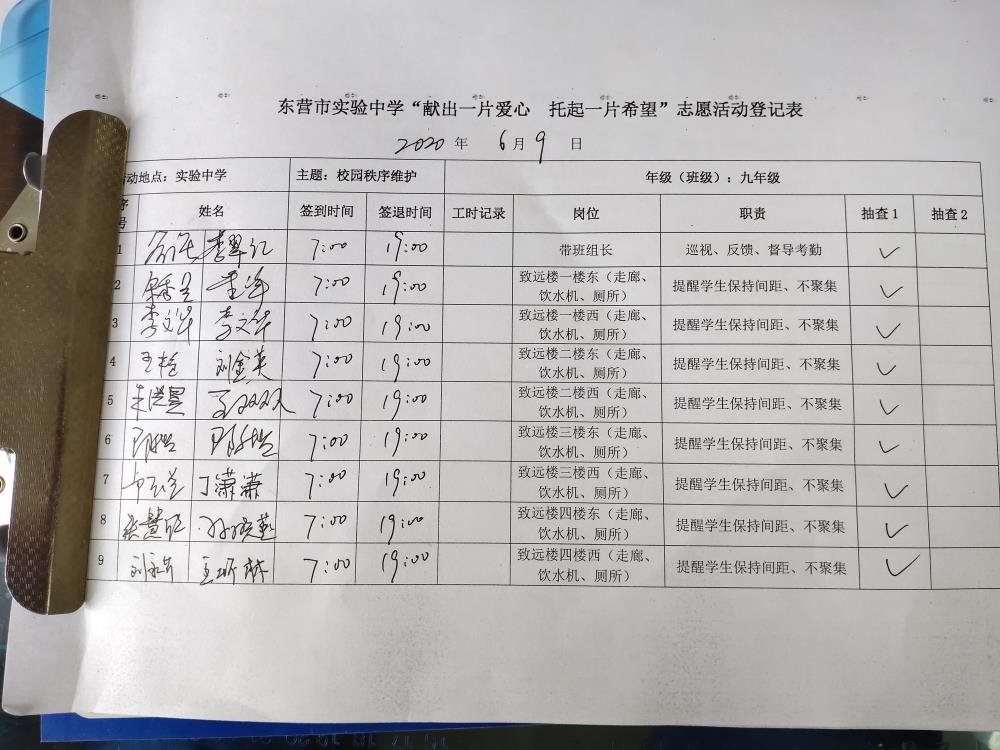 东营市实验中学“献出一片爱心 托起一片希望”志愿活动登记表
2020 年 6 月 9 日
动地点：实验中学 主题：校园秩序维护 年级（班级）：九年级
序号 姓名 签到时间 签退时间 工时记录 岗位 职责 抽查1 抽查2
1 李翠红 7:00 19:00 带班组长 巡视、反馈、督导考勤 ✓
2 7:00 19:00 致远楼一楼东（走廊、饮水机、厕所） 提醒学生保持间距、不聚集 ✓
3 李文华 李文华 7:00 19:00 致远楼一楼西（走廊、饮水机、厕所） 提醒学生保持间距、不聚集 ✓
4 刘金英 7:00 19:00 致远楼二楼东（走廊、饮水机、厕所） 提醒学生保持间距、不聚集 ✓
5 朱洪昙 王双双 7:00 19:00 致远楼二楼西（走廊、饮水机、厕所） 提醒学生保持间距、不聚集 ✓
6 7:00 19:00 致远楼三楼东（走廊、饮水机、厕所） 提醒学生保持间距、不聚集 ✓
7 丁潇潇 7:00 19:00 致远楼三楼西（走廊、饮水机、厕所） 提醒学生保持间距、不聚集 ✓
8 7:00 19:00 致远楼四楼东（走廊、饮水机、厕所） 提醒学生保持间距、不聚集 ✓
9 7:00 19:00 致远楼四楼西（走廊、饮水机、厕所） 提醒学生保持间距、不聚集 ✓